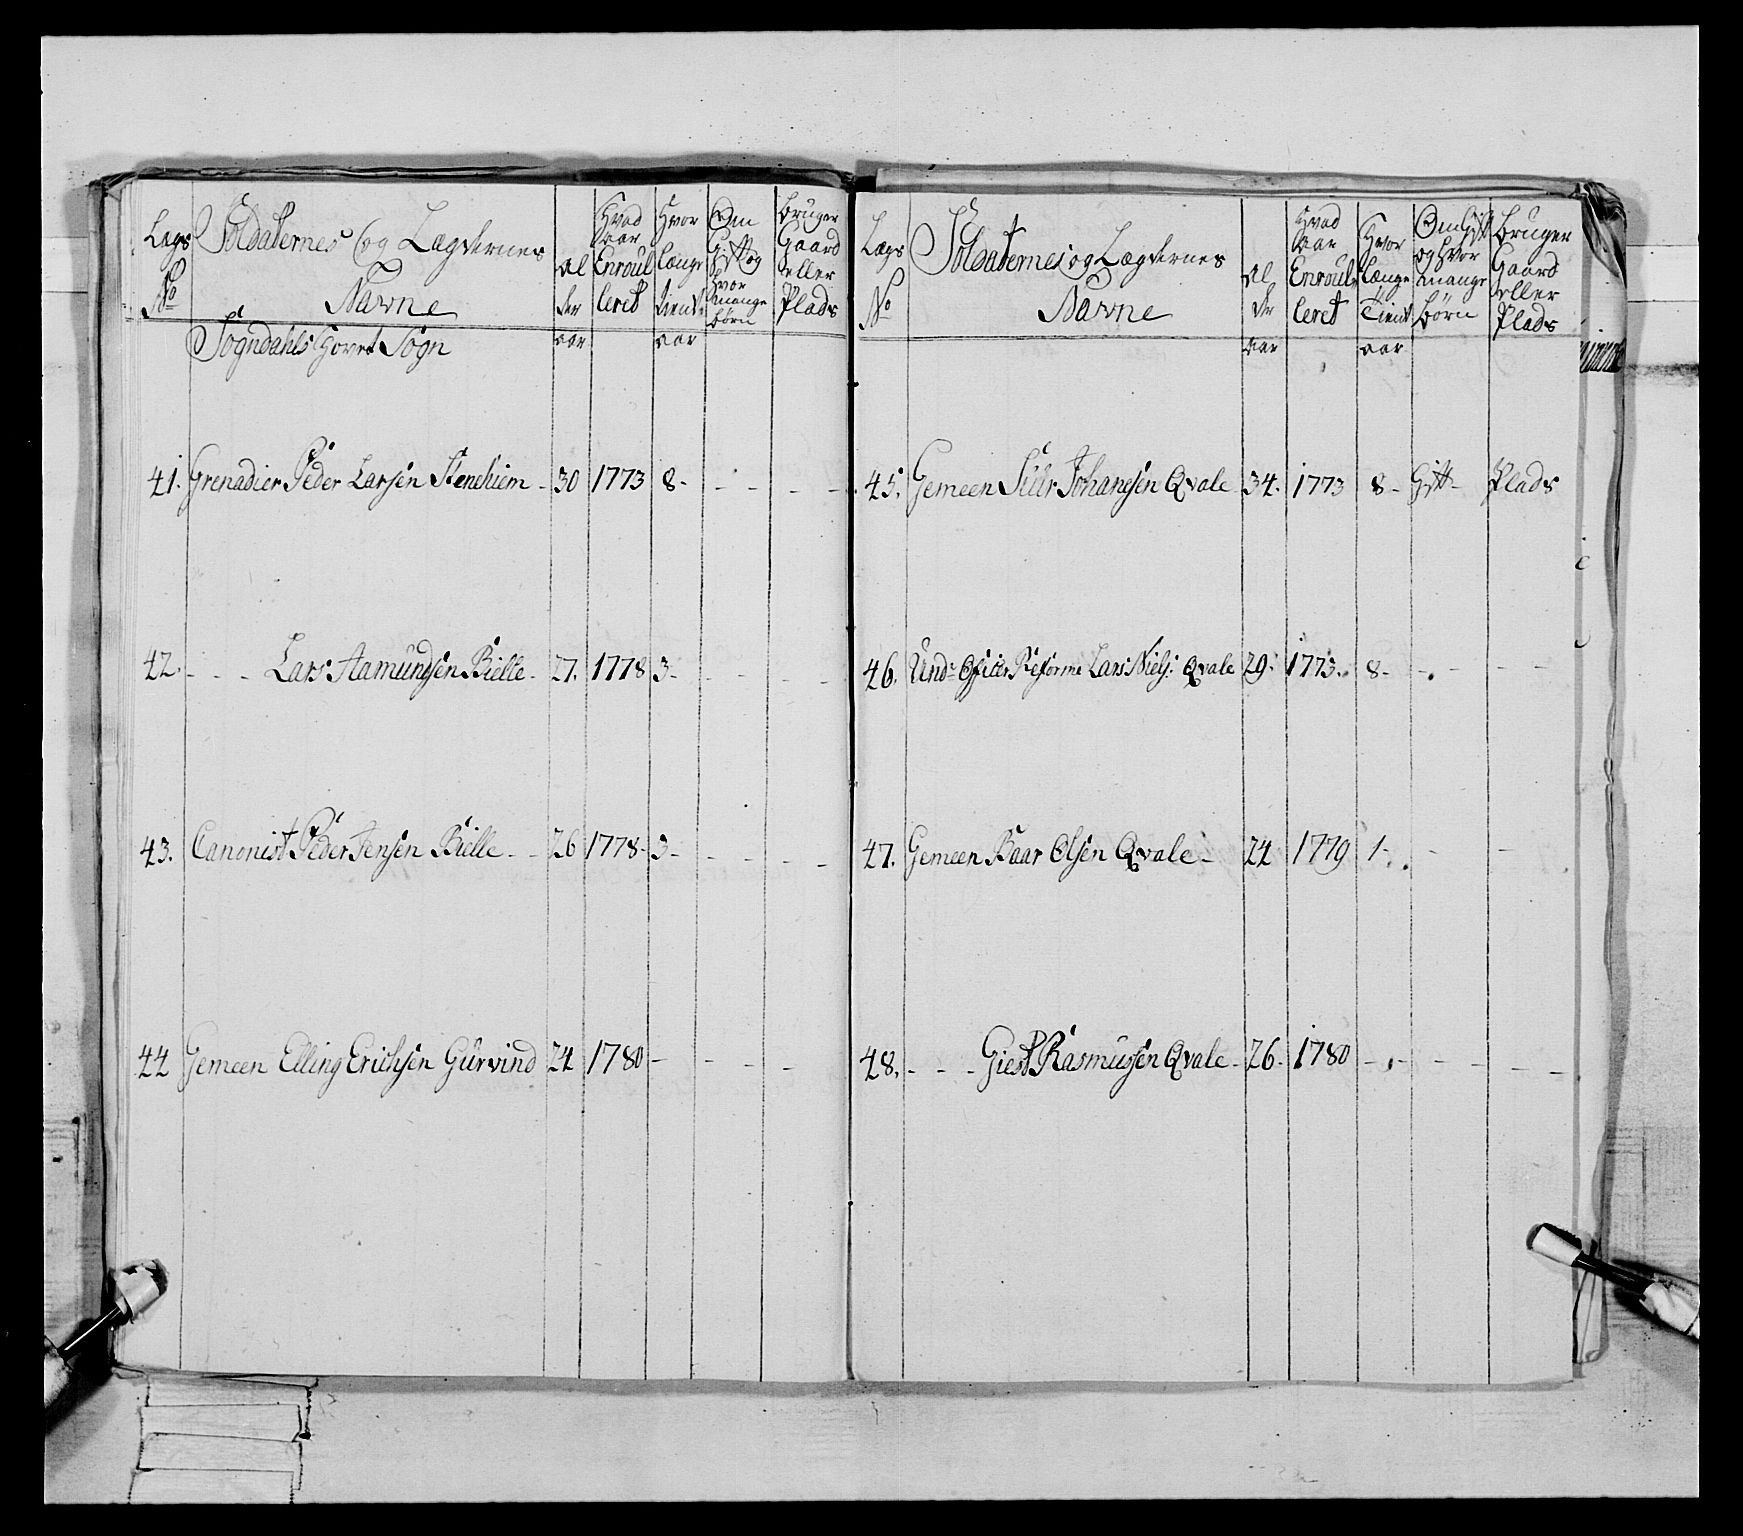 Lægs No | Soldaternes og Lægdernes Navne | Alder aar | Hvad Aar Enroulleret | Hvor længe tient aar | Om Gift og hvor mange børn | Bruger Gaard eller Plads
Sogndahls Hovet Sogn
41. Grenadier Peder Larsen Stenehiem - 30 1773 8 - - - - -
42. - - Lars Aamundsen Bielle - 27. 1778 3 - - - - -
43. Canonist Peder Jensen Bielle - - 26 1778 - 3 - - - - -
44 Gemeen Elling Erichsen Gurvind 24 1780 - - - -
Lægs No | Soldaternes og Lægdernes Navne | Alder Aar | Hvad Aar Enroulleret | Hvor længe Tient aar | Om Gift og hvor mange børn | Bruger Gaard eller Plads
45. Gemeen Siur Johanesen Qvale 34. 1773 8 - Gift - Plads
46. Undr Officier Reforme Lars Niels: Qvale 29. 1773. 8 - - - - -
47. Gemeen Baar Olsen Qvale - 24 1779 1 - - -
48. - - - Giest Rasmussen Qvale - 26. 1780 - - - - -